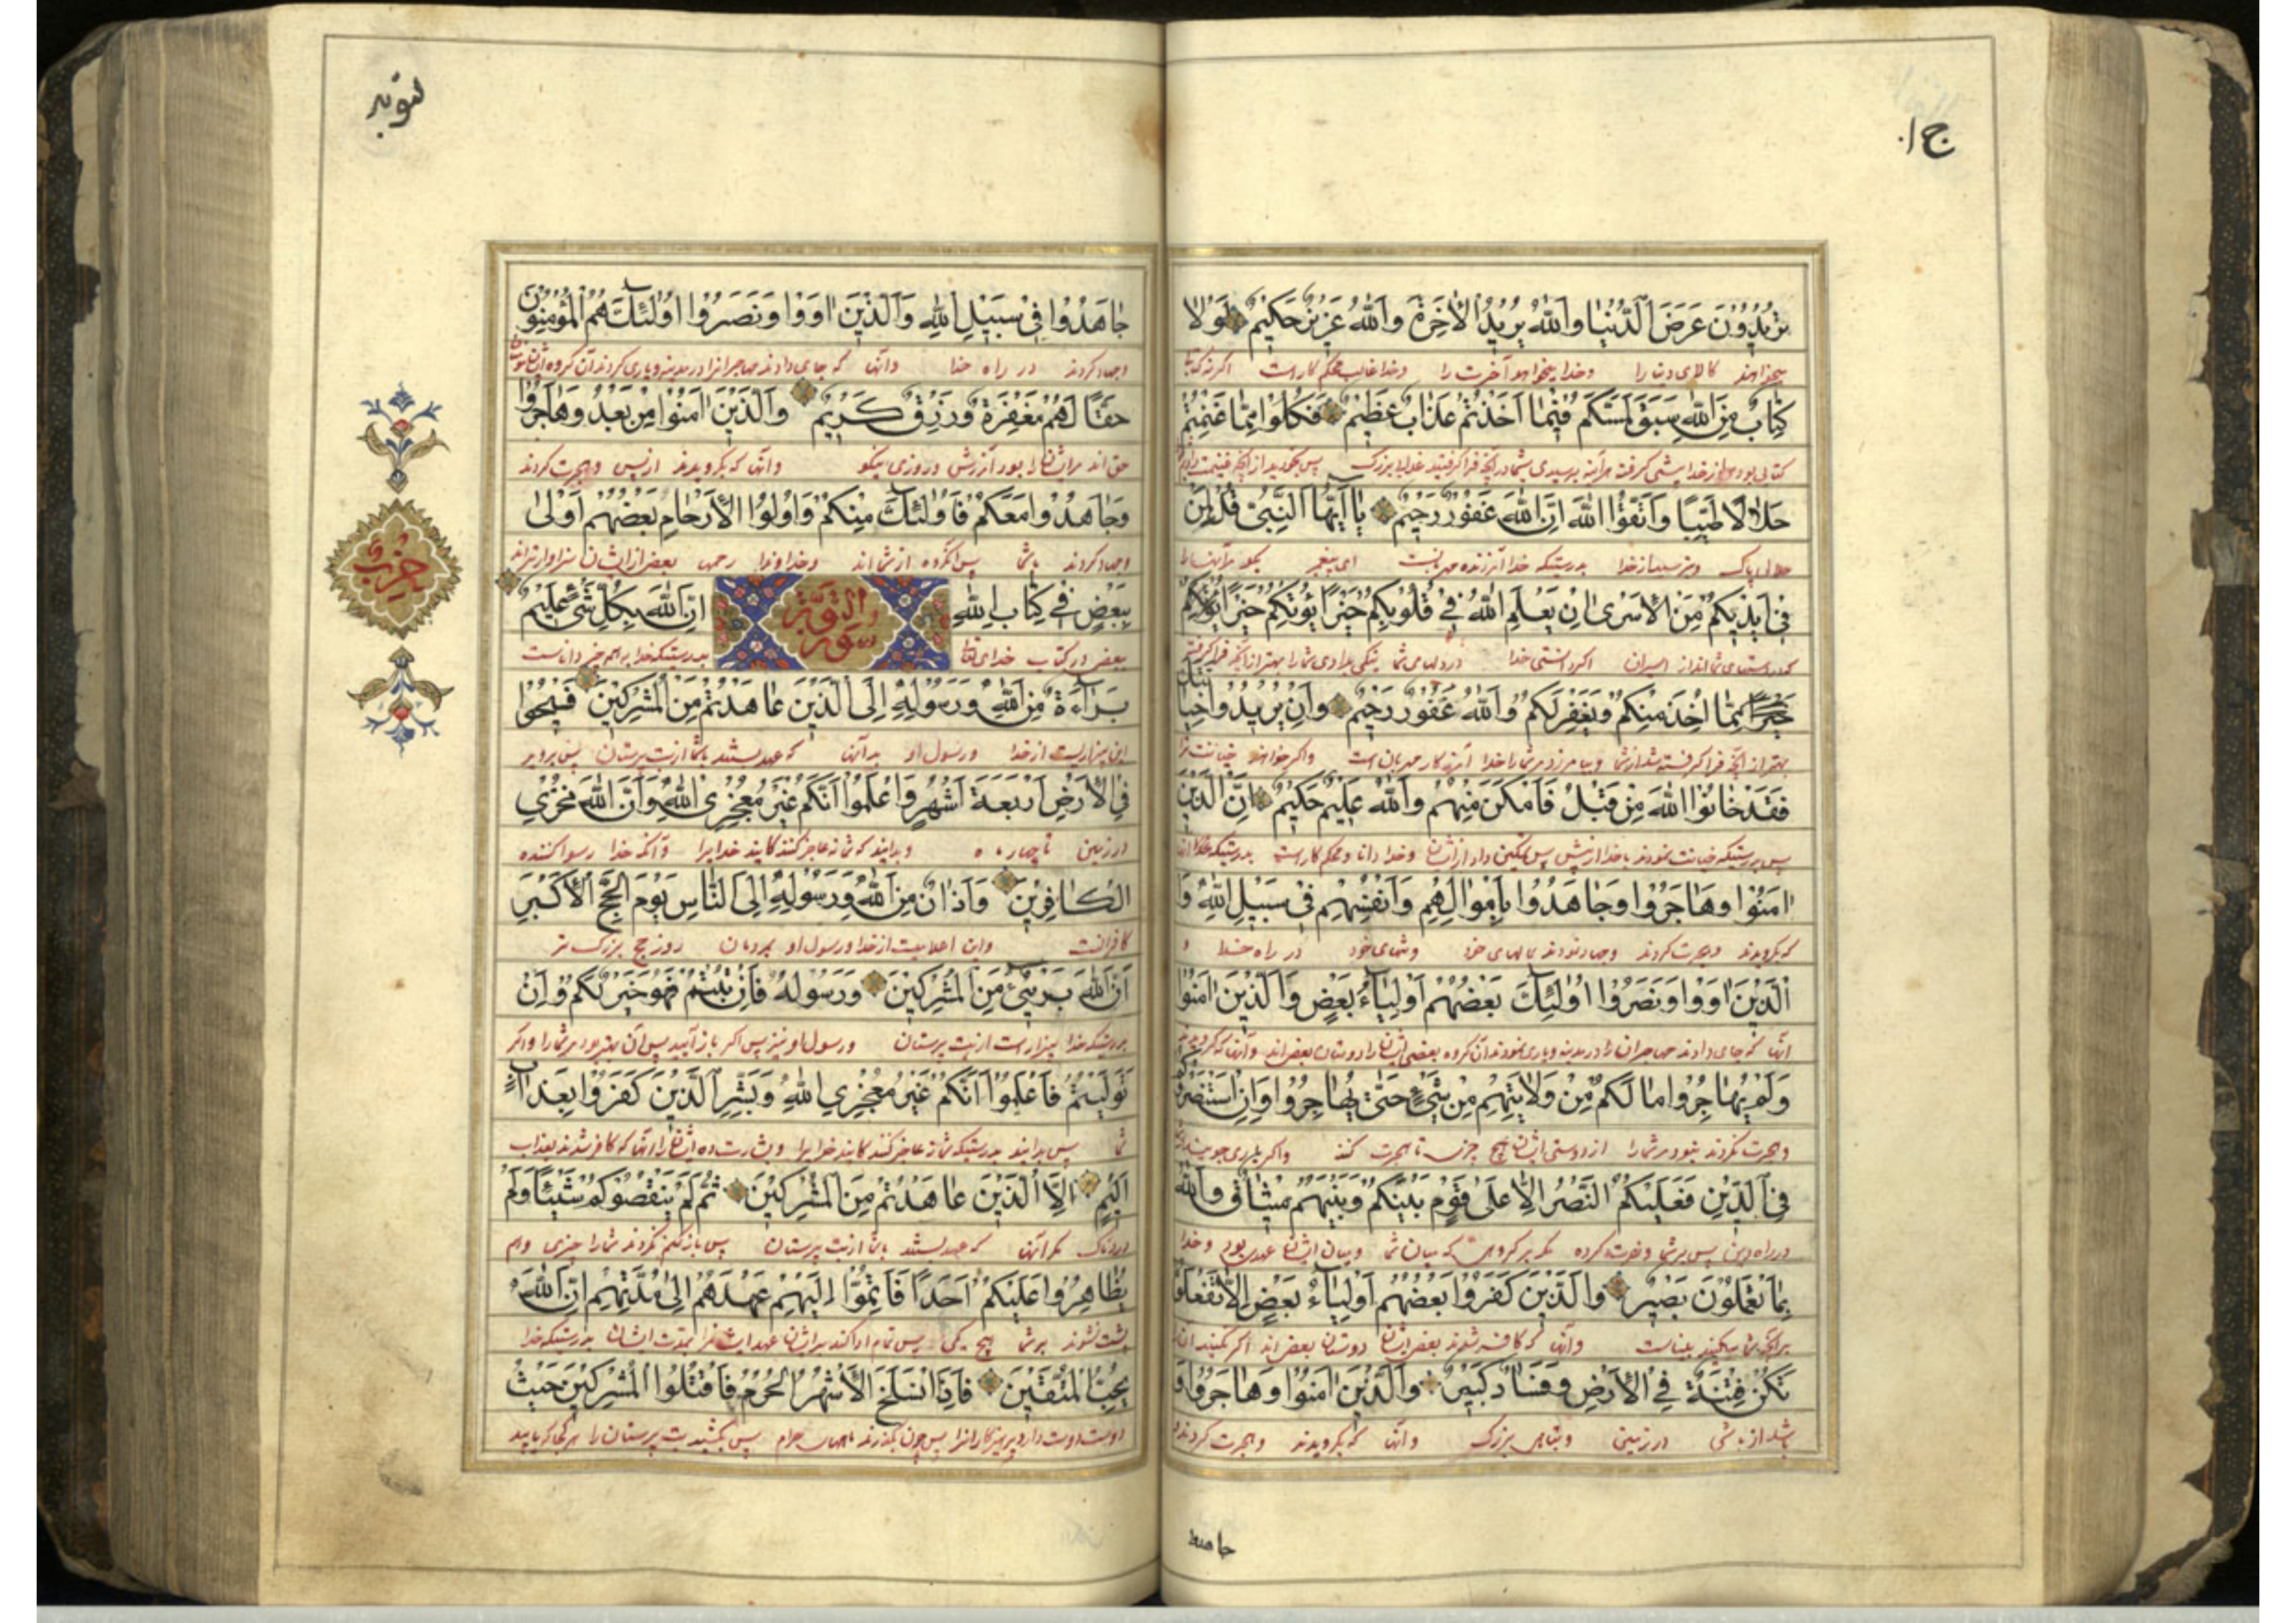 ج ا.
تُرِيدُونَ عَرَضَ الدُّنْيَا وَاللّٰهُ يُرِيدُ الْاٰخِرَةَ وَاللّٰهُ عَزِيزٌ حَكِيمٌ لَوْلَا
میخواهند کالای دنیا را وخدا میخواهد آخرت را وخدا غالب محکم کار است اکر نه
كِتَابٌ مِنَ اللّٰهِ سَبَقَ لَمَسَّكُمْ فِيمَا اَخَذْتُمْ عَذَابٌ عَظِيمٌ فَكُلُوا مِمَّا غَنِمْتُمْ
کتابی بودی از خدا پیشی کرفته هر آینه برسیدی بشما در آنچه فرا کرفتید عذاب بزرک پس بخورید از آنچه غنیمت
حَلَالًا طَيِّبًا وَاتَّقُوا اللّٰهَ اِنَّ اللّٰهَ غَفُورٌ رَحِيمٌ يَا اَيُّهَا النَّبِيُّ قُلْ لِمَنْ
حلال پاک وبترسید از خدا بدرستیکه خدا آمرزنده مهربانست ای پیغمبر بکو
فِي اَيْدِيكُمْ مِنَ الْاَسْرٰى اِنْ يَعْلَمِ اللّٰهُ فِي قُلُوبِكُمْ خَيْرًا يُؤْتِكُمْ خَيْرًا
که در دستهای شمااند از اسیران اکر دانستی خدا در دلهای شما نیکی بدادی شما را بهتر از آنچه فرا کرفته
مِمَّا اُخِذَ مِنْكُمْ وَيَغْفِرْ لَكُمْ وَاللّٰهُ غَفُورٌ رَحِيمٌ وَاِنْ يُرِيدُوا خِيَانَتَكَ
بهتر از آنچه فرا کرفته شد از شما وبیامرزد مر شما را خدا آمرزکار مهربان است واکر خواهند خیانت ترا
فَقَدْ خَانُوا اللّٰهَ مِنْ قَبْلُ فَاَمْكَنَ مِنْهُمْ وَاللّٰهُ عَلِيمٌ حَكِيمٌ اِنَّ الَّذِينَ
پس بدرستیکه خیانت نمودند با خدا از پیش پس تمکین داد از ایشان وخدا دانا ومحکم کار است بدرستیکه
اٰمَنُوا وَهَاجَرُوا وَجَاهَدُوا بِاَمْوَالِهِمْ وَاَنْفُسِهِمْ فِي سَبِيلِ اللّٰهِ وَ
که بکرویدند وهجرت کردند وجهاد نمودند بمالهای خود وتنهای خود در راه خدا و
الَّذِينَ اٰوَوْا وَنَصَرُوا اُولٰئِكَ بَعْضُهُمْ اَوْلِيَاءُ بَعْضٍ وَالَّذِينَ اٰمَنُوا
آنها که جای دادند مهاجران را در مدینه ویاری نمودند آن کروه بعضی ایشان را دوستان بعض اند وآنها که کرویدند
وَلَمْ يُهَاجِرُوا مَا لَكُمْ مِنْ وَلَايَتِهِمْ مِنْ شَيْءٍ حَتّٰى يُهَاجِرُوا وَاِنِ اسْتَنْصَرُوكُمْ
وهجرت نکردند نبود مر شما را از دوستی ایشان هیچ چیزی تا هجرت کنند واکر یاری جویند
فِي الدِّينِ فَعَلَيْكُمُ النَّصْرُ اِلَّا عَلٰى قَوْمٍ بَيْنَكُمْ وَبَيْنَهُمْ مِيثَاقٌ وَاللّٰهُ
در راه دین پس بر شما ونصرت کرده مکر بر کروهی که میان شما ومیان ایشان عهدی بود وخدا
بِمَا تَعْمَلُونَ بَصِيرٌ وَالَّذِينَ كَفَرُوا بَعْضُهُمْ اَوْلِيَاءُ بَعْضٍ اِلَّا تَفْعَلُوهُ
برآنچه شما میکنید بیناست وآنها که کافر شدند بعض ایشان دوستان بعض اند اکر نکنید
تَكُنْ فِتْنَةٌ فِي الْاَرْضِ وَفَسَادٌ كَبِيرٌ وَالَّذِينَ اٰمَنُوا وَهَاجَرُوا وَ
در زمین وتباهی بزرک وآنها که بکرویدند وهجرت کردند
جاهدوا
توبه
جَاهَدُوا فِي سَبِيلِ اللّٰهِ وَالَّذِينَ اٰوَوْا وَنَصَرُوا اُولٰئِكَ هُمُ الْمُؤْمِنُونَ
وجهاد کردند در راه خدا وآنها که جای دادند مهاجرانرا در مدینه ویاری کردند آن کروه ایشان
حَقًّا لَهُمْ مَغْفِرَةٌ وَرِزْقٌ كَرِيمٌ وَالَّذِينَ اٰمَنُوا مِنْ بَعْدُ وَهَاجَرُوا
حق اند مر ایشان را بود آمرزش وروزی نیکو وآنها که بکرویدند از پس وهجرت کردند
وَجَاهَدُوا مَعَكُمْ فَاُولٰئِكَ مِنْكُمْ وَاُولُوا الْاَرْحَامِ بَعْضُهُمْ اَوْلٰى
وجهاد کردند باشما پس آنکروه از شمااند وخداوندان رحمها بعض از ایشان سزاوارترند
بِبَعْضٍ فِي كِتَابِ اللّٰهِ سورة التوبة اِنَّ اللّٰهَ بِكُلِّ شَيْءٍ عَلِيمٌ
ببعض در کتاب خدای بدرستیکه خدا بر همه چیز داناست
حزب
بَرَاءَةٌ مِنَ اللّٰهِ وَرَسُولِهِ اِلَى الَّذِينَ عَاهَدْتُمْ مِنَ الْمُشْرِكِينَ فَسِيحُوا
این بیزاریست از خدا ورسول او بر آنها که عهد بستند باشما از بت پرستان پس بروید
فِي الْاَرْضِ اَرْبَعَةَ اَشْهُرٍ وَاعْلَمُوا اَنَّكُمْ غَيْرُ مُعْجِزِي اللّٰهِ وَاَنَّ اللّٰهَ مُخْزِي
در زمین تا چهار ماه وبدانید که شما نه عاجز کنندکانید خدایرا وآنکه خدا رسوا کننده
الْكَافِرِينَ وَاَذَانٌ مِنَ اللّٰهِ وَرَسُولِهِ اِلَى النَّاسِ يَوْمَ الْحَجِّ الْاَكْبَرِ
کافرانست واین اعلامیست از خدا ورسول او بمردمان روز حج بزرک تر
اَنَّ اللّٰهَ بَرِيءٌ مِنَ الْمُشْرِكِينَ وَرَسُولُهُ فَاِنْ تُبْتُمْ فَهُوَ خَيْرٌ لَكُمْ وَاِنْ
بدرستیکه خدا بیزار است از بت پرستان ورسول او نیز پس اکر باز آیید پس آن بهتر بود مر شما را واکر
تَوَلَّيْتُمْ فَاعْلَمُوا اَنَّكُمْ غَيْرُ مُعْجِزِي اللّٰهِ وَبَشِّرِ الَّذِينَ كَفَرُوا بِعَذَابٍ
پس بدانید بدرستیکه شما نه عاجز کنندکانید خدایرا وبشارت ده ایشان را آنها که کافر شدند بعذاب
اَلِيمٍ اِلَّا الَّذِينَ عَاهَدْتُمْ مِنَ الْمُشْرِكِينَ ثُمَّ لَمْ يَنْقُصُوكُمْ شَيْئًا وَلَمْ
دردناک مکر آنها که عهد بستند باشما از بت پرستان پس باز کم نکردند شما را چیزی وهم
يُظَاهِرُوا عَلَيْكُمْ اَحَدًا فَاَتِمُّوا اِلَيْهِمْ عَهْدَهُمْ اِلٰى مُدَّتِهِمْ اِنَّ اللّٰهَ
پشت نشوند بر شما هیچ یکی پس تمام ادا کنید بر ایشان عهد ایشانرا بمدت ایشان بدرستیکه خدا
يُحِبُّ الْمُتَّقِينَ فَاِذَا انْسَلَخَ الْاَشْهُرُ الْحُرُمُ فَاقْتُلُوا الْمُشْرِكِينَ حَيْثُ
دوست دارد پرهیزکارانرا پس چون بکذرند ماههای حرام پس بکشید بت پرستان را هر کجا که یابید